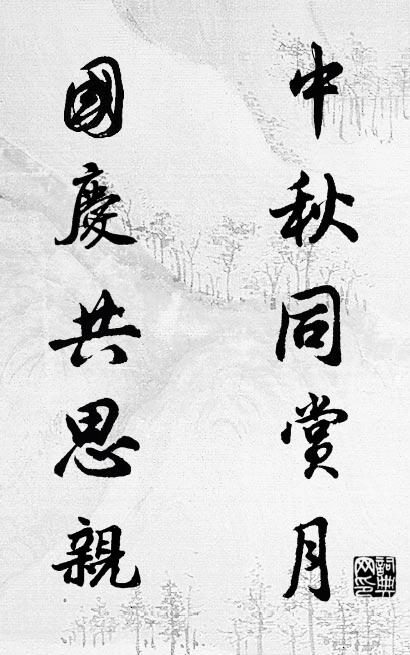 中秋同賞月
國慶共思親
詞典網印